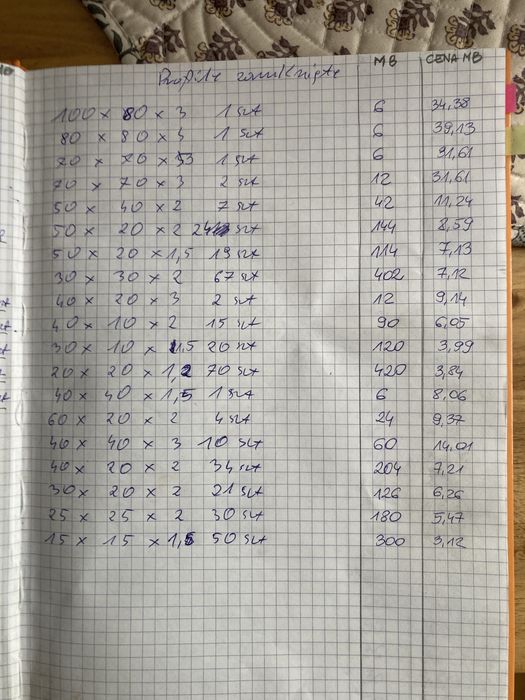 Profile zamknięte MB CENA MB
100 x 80 x 3 1 szt 6 34,38
80 x 80 x 3 1 szt 6 39,13
70 x 70 x 3 1 szt 6 31,61
70 x 70 x 3 2 szt 12 31,61
50 x 40 x 2 7 szt 42 11,24
50 x 20 x 2 24 szt 144 8,59
50 x 20 x 1,5 19 szt 114 7,13
30 x 30 x 2 67 szt 402 7,12
40 x 20 x 3 2 szt 12 9,14
40 x 10 x 2 15 szt 90 6,05
30 x 10 x 1,5 20 szt 120 3,99
20 x 20 x 1,2 70 szt 420 3,84
40 x 40 x 1,5 1 szt 6 8,06
60 x 20 x 2 4 szt 24 9,37
40 x 40 x 3 10 szt 60 14,01
40 x 20 x 2 34 szt 204 7,21
30 x 20 x 2 21 szt 126 6,26
25 x 25 x 2 30 szt 180 5,47
15 x 15 x 1,5 50 szt 300 3,12